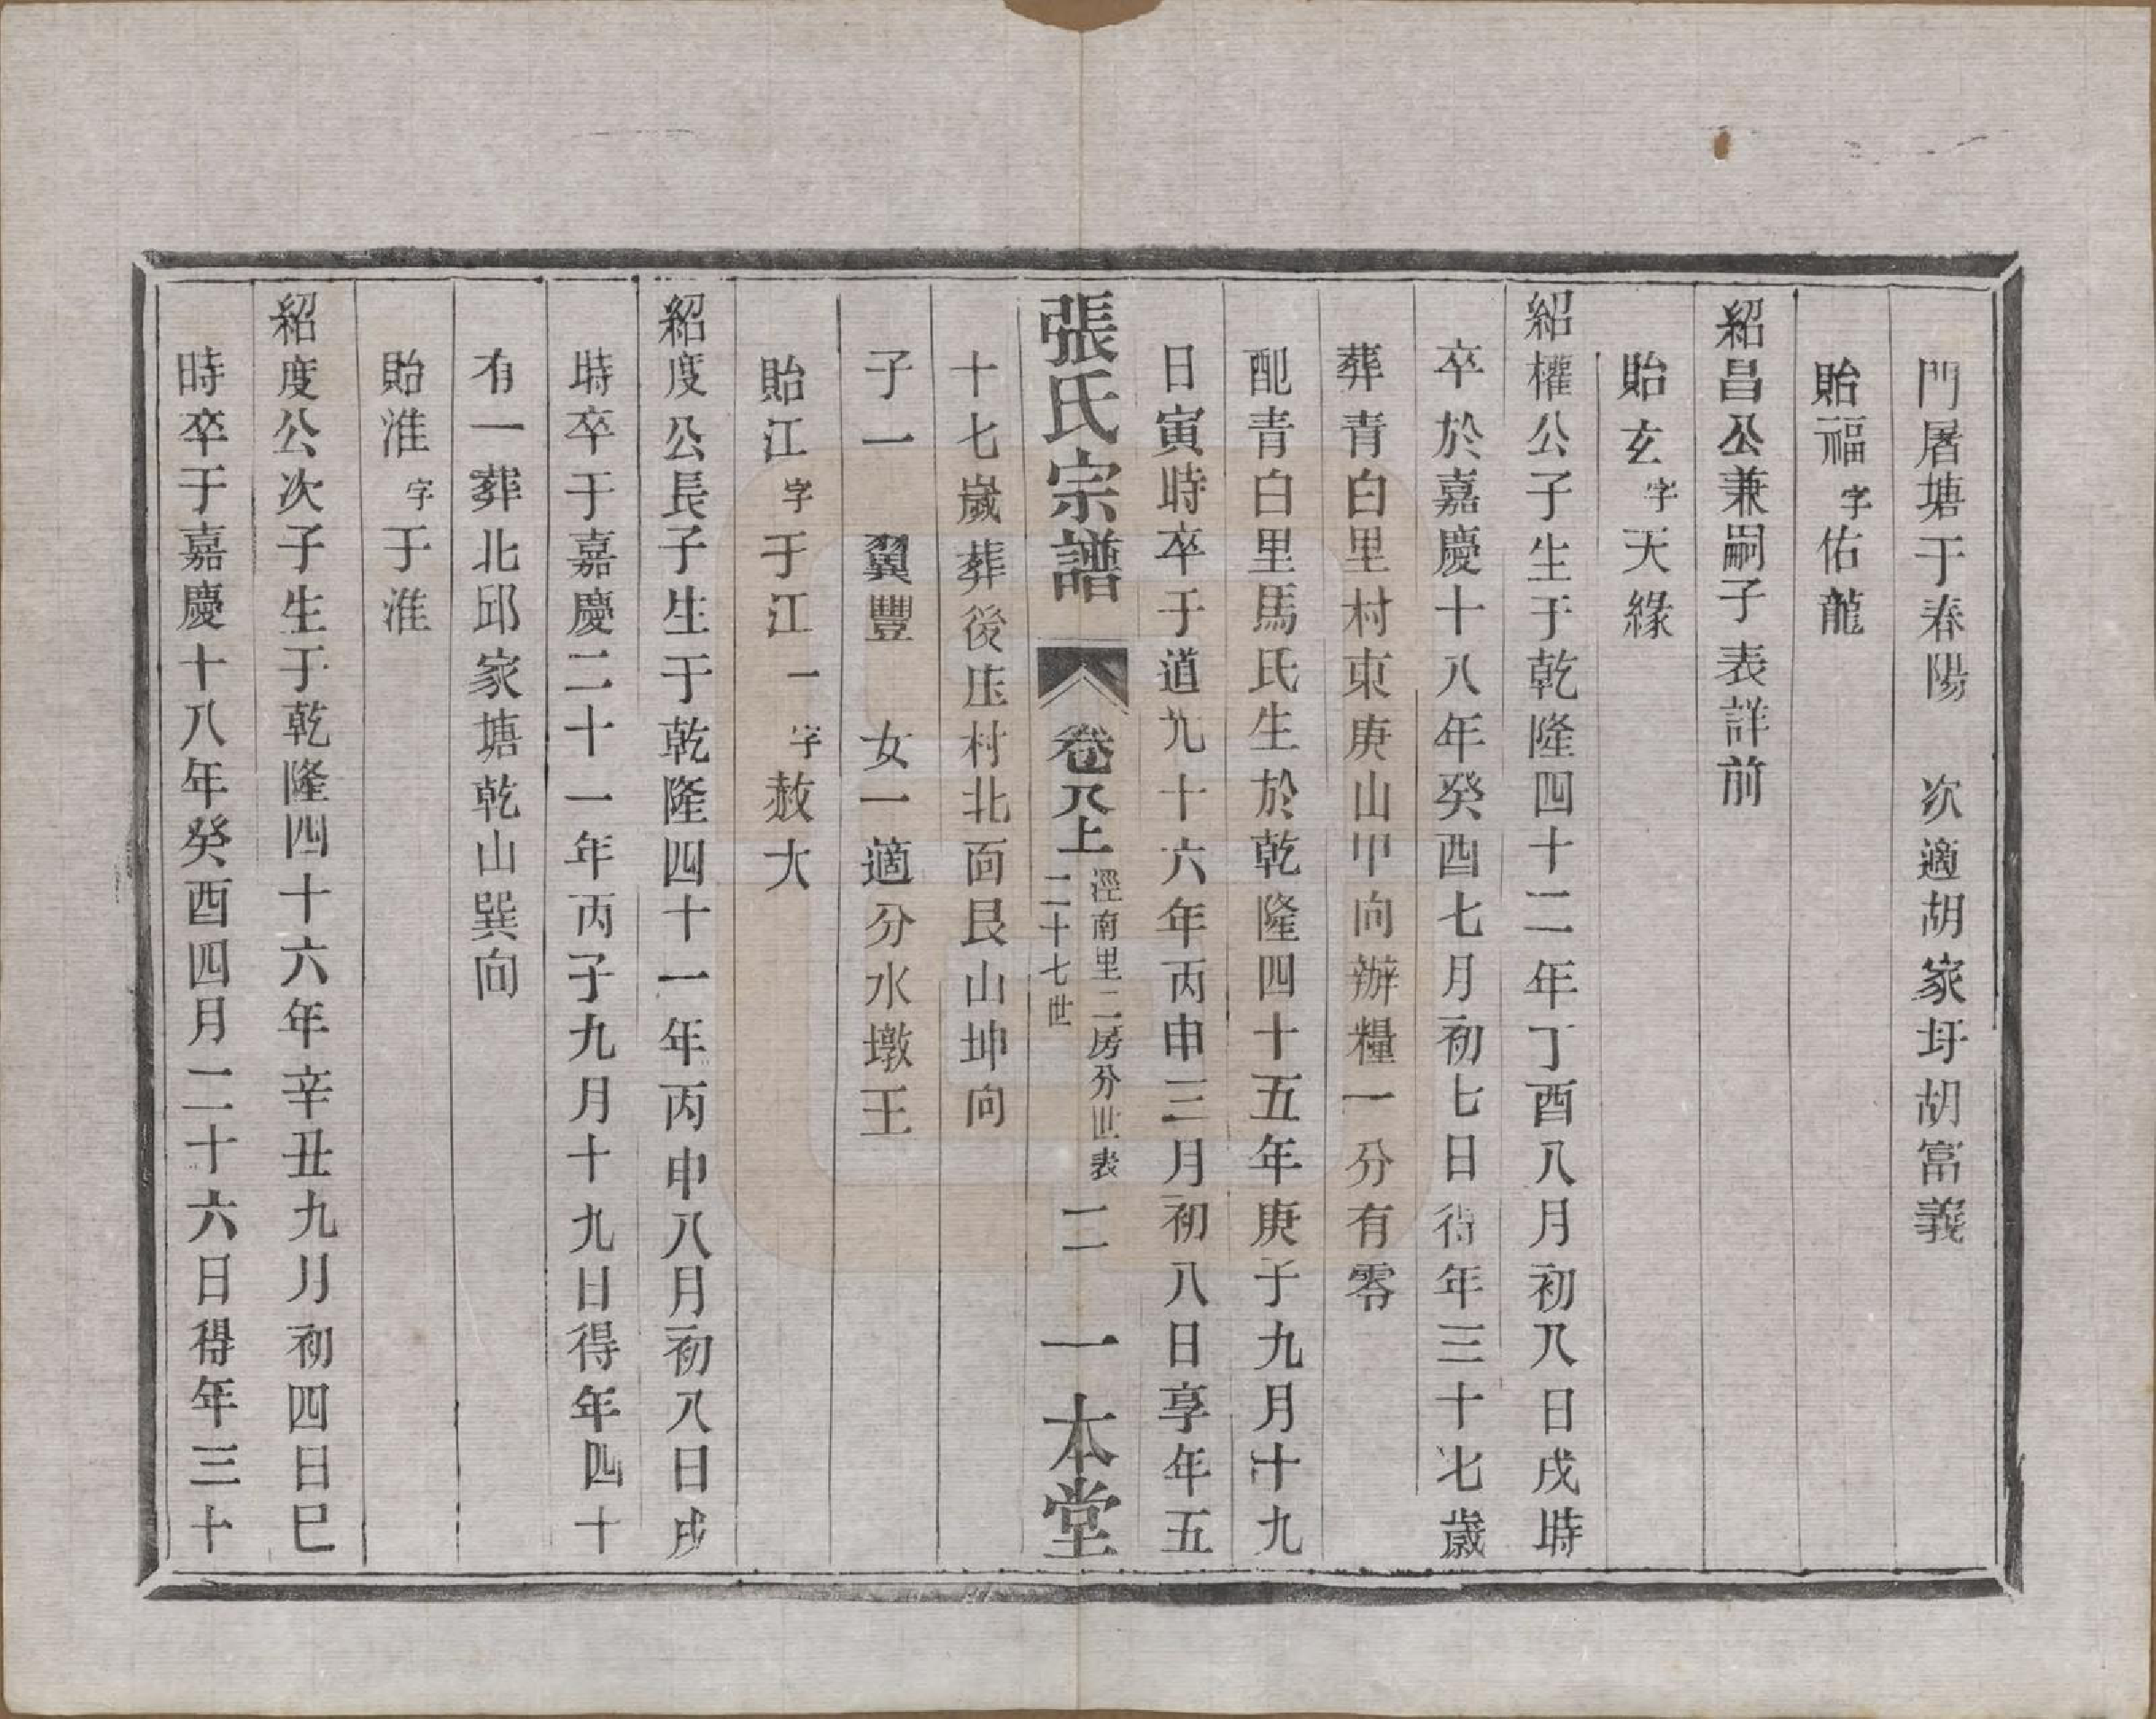 門屠塘于春陽　次適胡家圩胡富義
貽福字佑龍
紹昌公兼嗣子表詳前
貽玄字天緣
紹權公子生于乾隆四十二年丁酉八月初八日戌時
卒於嘉慶十八年癸酉七月初七日得年三十七歲
葬青白里村東庚山甲向辦糧一分有零
配青白里馬氏生於乾隆四十五年庚子九月十九
日寅時卒于道光十六年丙申三月初八日享年五
張氏宗譜
卷八上
涇南里二房分世表
二十七世
二
一本堂
十七歲葬後庄村北面艮山坤向
子一　翼豐　女一適分水墩王
貽江字于江一字赦大
紹度公長子生于乾隆四十一年丙申八月初八日戌
時卒于嘉慶二十一年丙子九月十九日得年四十
有一葬北邱家塘乾山巽向
貽淮字于淮
紹度公次子生于乾隆四十六年辛丑九月初四日巳
時卒于嘉慶十八年癸酉四月二十六日得年三十